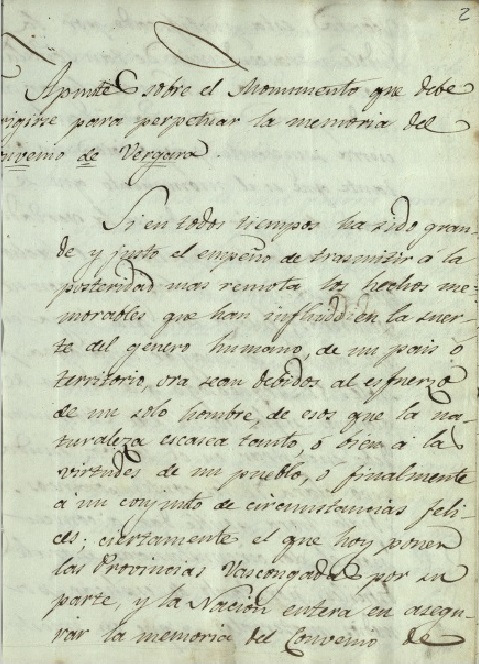 2
Apuntes sobre el Monumento que debe
rigirse para perpetuar la memoria del
nvenio de Vergara.
Si en todos tiempos ha sido gran-
de y justo el empeño de trasmitir á la
posteridad mas remota los hechos me-
morables que han influido en la suer-
te del género humano, de un pais ó
territorio, ora sean debidos al esfuerzo
de un solo hombre, de esos que la na-
turaleza escasea tanto, ó bien á las
virtudes de un pueblo, ó finalmente
á un conjunto de circunstancias feli-
ces; ciertamente el que hoy ponen
las Provincias Vascongadas por su
parte, y la Nación entera en asegu-
rar la memoria del Convenio de